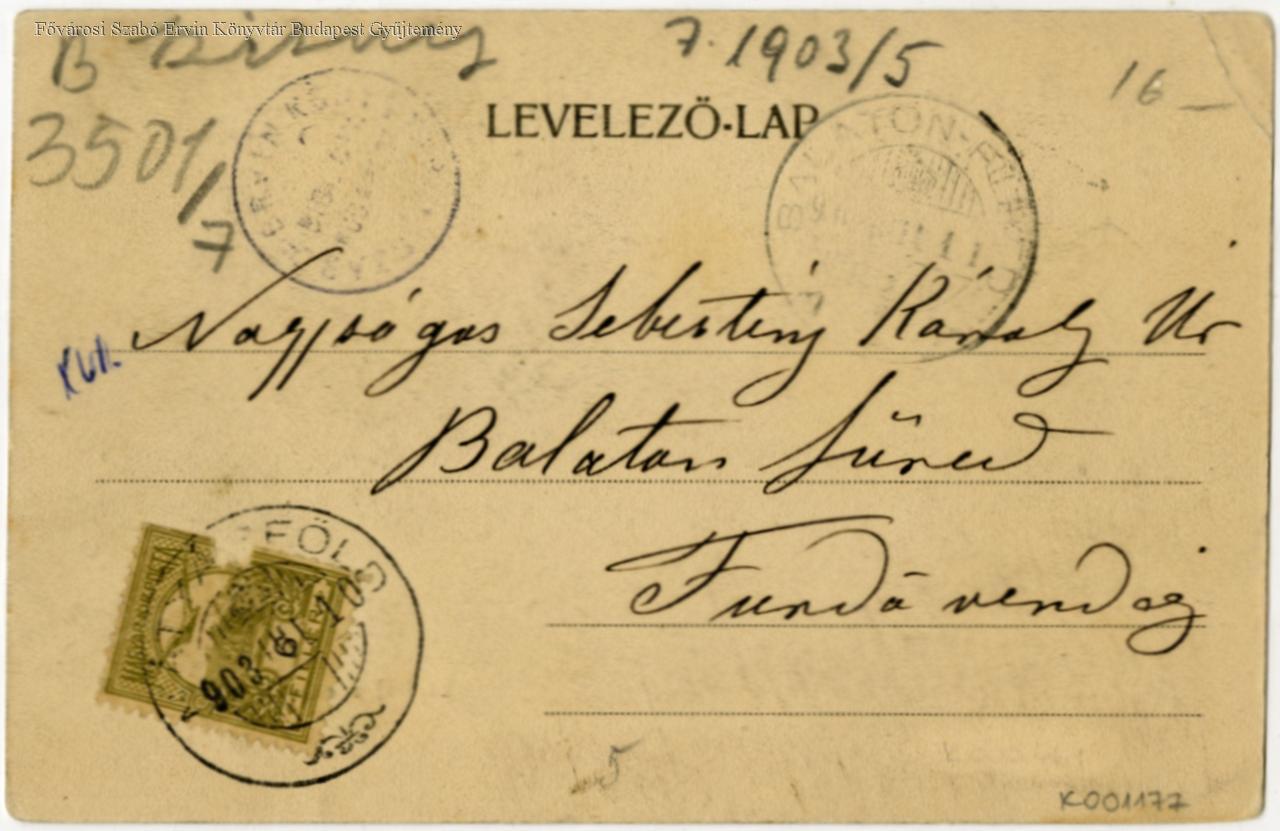 Fővárosi Szabó Ervin Könyvtár Budapest Gyűjtemény
B
7. 1903/5
16
3501/7
LEVELEZŐ-LAP
BALATON-FÜRED
Nagyságos Sebestény Károly Úr
Balaton füred
Fürdő vendég
903
5
K001177